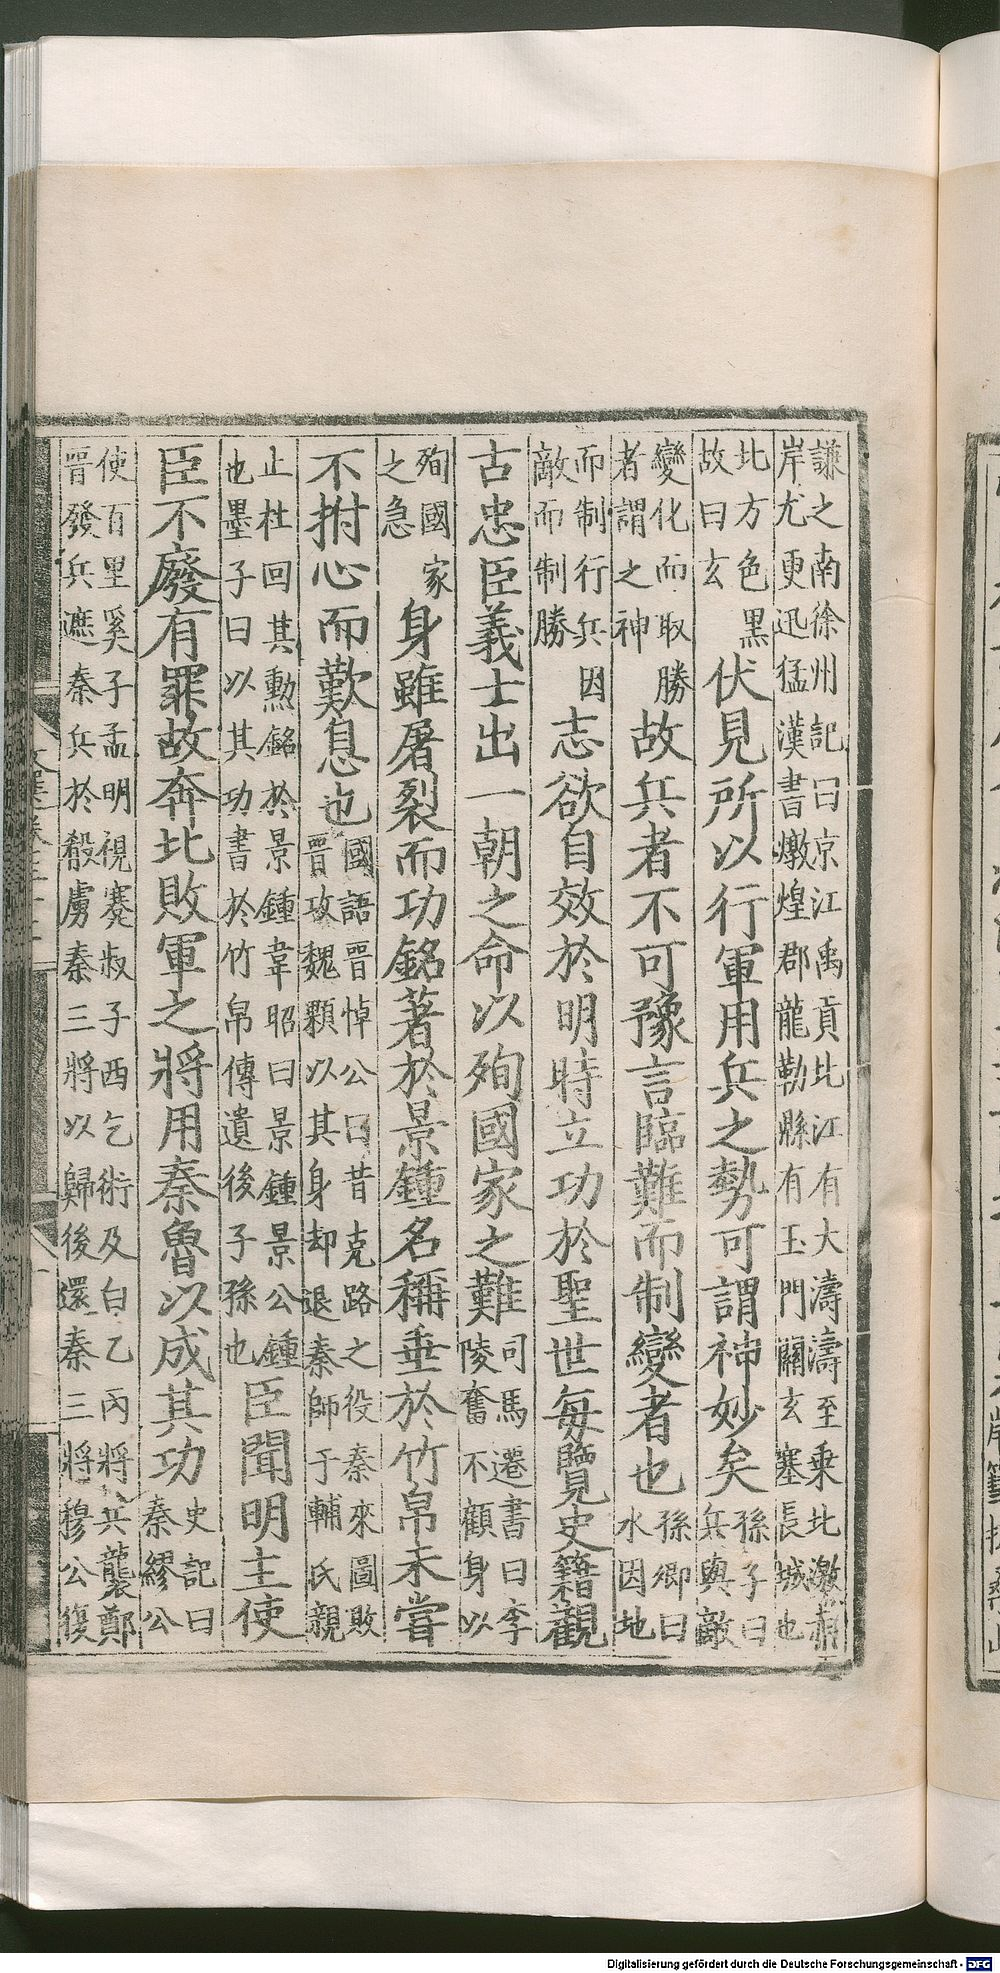 謙之南徐州記曰京江禹貢北江有大濤濤至乗北激赤
岸尤更迅猛漢書燉煌郡龍勒縣有玉門關玄塞長城也
北方色黑
故曰玄
伏見所以行軍用兵之勢可謂神妙矣
孫子曰
兵與敵
變化而取勝
者謂之神
故兵者不可豫言臨難而制變者也
孫卿曰
水因地
而制行兵因
敵而制勝
志欲自效於明時立功於聖世每覽史籍觀
古忠臣義士出一朝之命以殉國家之難
司馬遷書曰李
陵奮不顧身以
殉國家
之急
身雖屠裂而功銘著於景鍾名稱垂於竹帛未嘗
不拊心而歎息也
國語晉悼公曰昔克路之役秦來圖敗
晉攻魏顆以其身却退秦師于輔氏親
止杜回其勲銘於景鍾韋昭曰景鍾景公鍾
也墨子曰以其功書於竹帛傳遺後子孫也
臣聞明主使
臣不廢有罪故奔北敗軍之將用秦魯以成其功
史記曰
秦繆公
使百里奚子孟明視蹇叔子西乞術及白乙丙將兵襲鄭
晉發兵遮秦兵於殽虜秦三將以歸後還秦三將穆公復
Digitalisierung gefördert durch die Deutsche Forschungsgemeinschaft - DFG